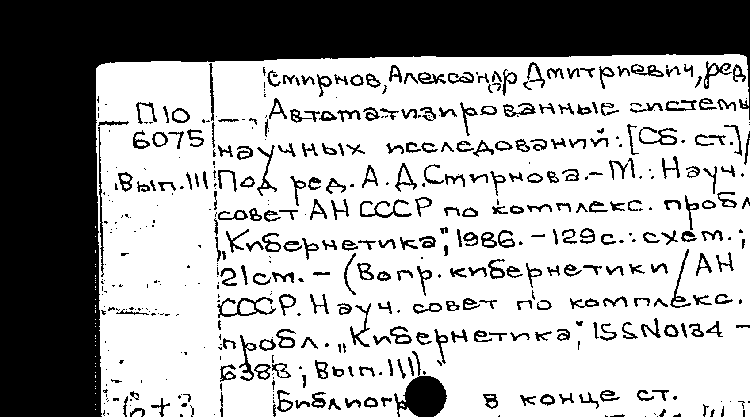 Смирнов, Александр Дмитриевич, ред.
П10 Автоматизированные системы
6075 научных исследований: [Сб. ст.] /
Вып. 111 Под ред. А. Д. Смирнова. - М.: Науч.
совет АН СССР по комплекс. пробл.
„Кибернетика", 1986. - 129 с.: схем.;
21 см. - (Вопр. кибернетики / АН
СССР. Науч. совет по комплекс.
пробл. „Кибернетика", ISSN 0134 -
6388; Вып. 111).
6+3 Библиогр в конце ст.